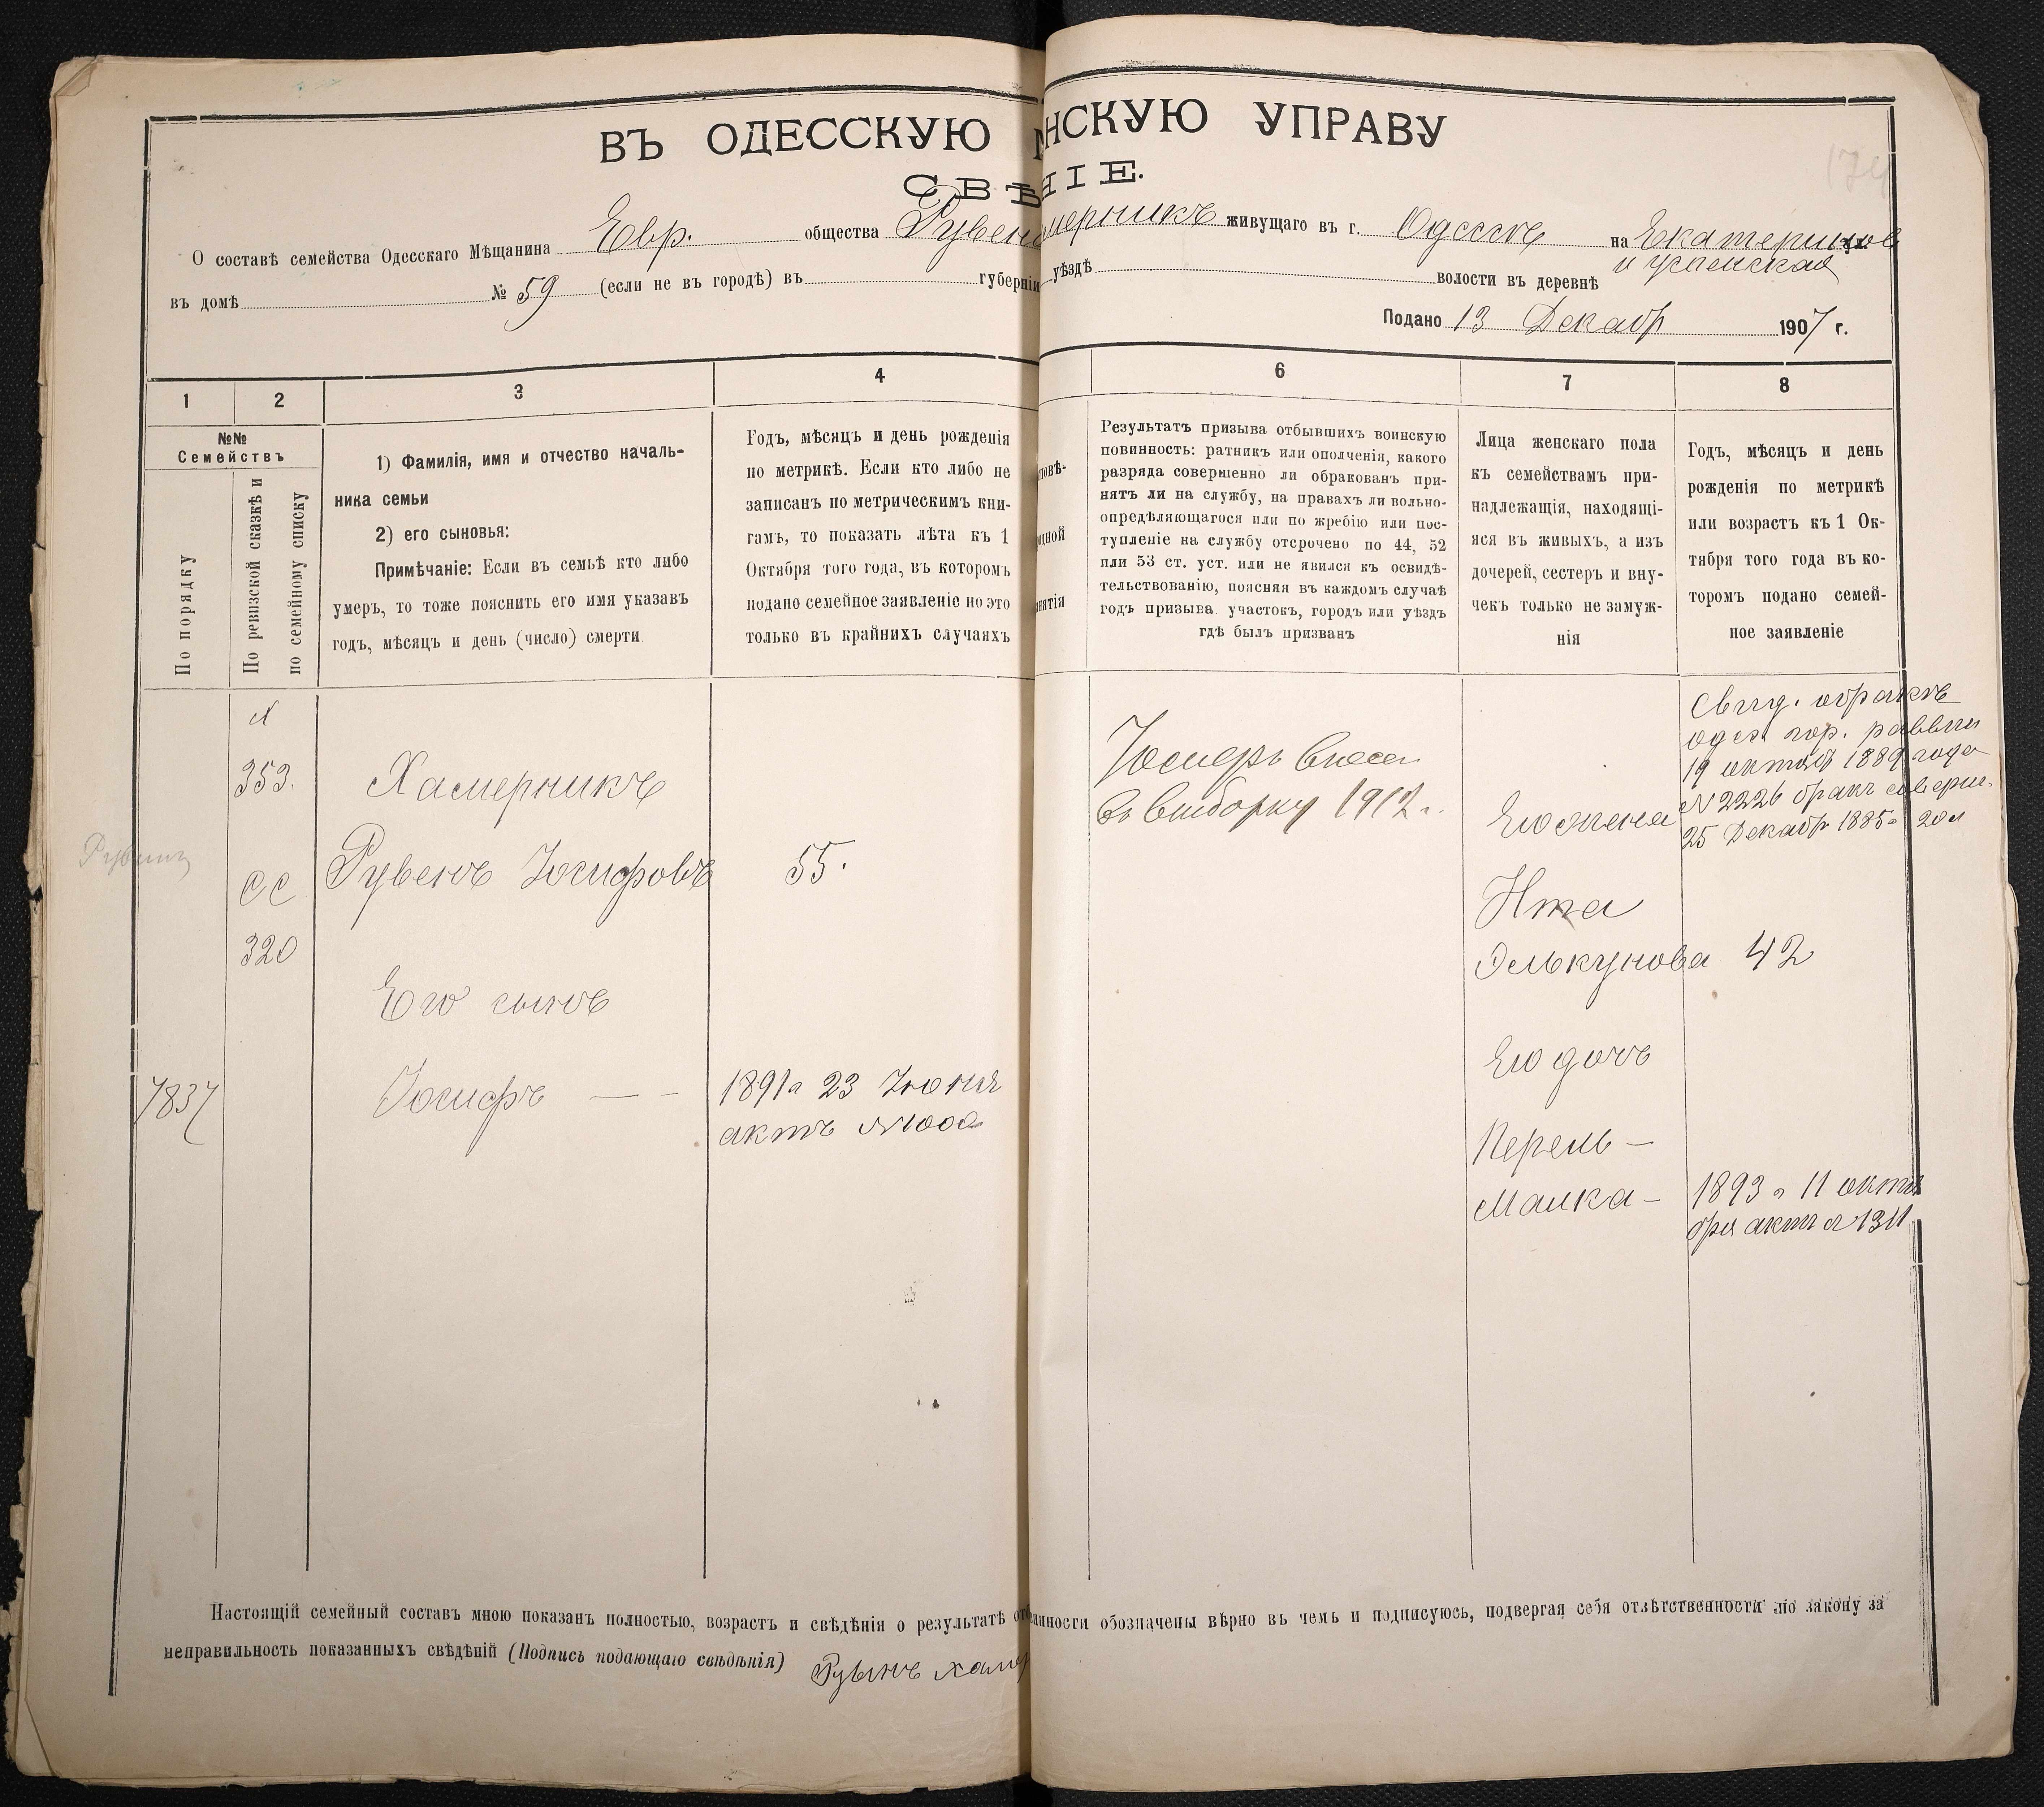 ВЪ ОДЕССКУЮ НСКУЮ УПРАВУ
СВѢ НІЕ.
О составѣ семейства Одесскаго Мѣщанина Евр. общества Рувен мерникъ живущаго въ г. Одессѣ на Екатеринов ул.
и Успенская
въ домѣ № 59 (если не въ городѣ) въ губерніи уѣздѣ волости въ деревнѣ
Подано 13 Декабр 1907 г.
1 2 3 4 6 7 8
№№
Семействъ
По порядку
По ревизской сказкѣ и
по семейному списку
1) Фамилія, имя и отчество началь-
ника семьи
2) его сыновья:
Примѣчаніе: Если въ семьѣ кто либо
умеръ, то тоже пояснить его имя указавъ
годъ, мѣсяцъ и день (число) смерти
Годъ, мѣсяцъ и день рожденія
по метрикѣ. Если кто либо не
записанъ по метрическимъ кни-
гамъ, то показать лѣта къ 1
Октября того года, въ которомъ
подано семейное заявленіе но это
только въ крайнихъ случаяхъ
повѣ-
одной
нятія
Результатъ призыва отбывшихъ воинскую
повинность: ратникъ или ополченія, какого
разряда совершенно ли обракованъ при-
нятъ ли на службу, на правахъ ли вольно-
опредѣляющагося или по жребію или пос-
тупленіе на службу отсрочено по 44, 52
или 53 ст. уст. или не явился къ освидѣ-
тельствованію, поясняя въ каждомъ случаѣ
годъ призыва участокъ, городъ или уѣздъ
гдѣ былъ призванъ
Лица женскаго пола
къ семействамъ при-
надлежащія, находящі-
яся въ живыхъ, а изъ
дочерей, сестеръ и вну-
чекъ только не замуж-
нія
Годъ, мѣсяцъ и день
рожденія по метрикѣ
или возрастъ къ 1 Ок-
тября того года въ ко-
торомъ подано семей-
ное заявленіе
№
353.
Хамерникъ
Рувенъ Іосифовъ 55.
СС
320
Его сынъ
7837 Іосифъ — — 1891 г 23 Іюня
актъ № 1000
Іосифъ внесен
въ выборку 1912 г.
Свид. о бракѣ
одес. гор. раввин
19 октяб 1889 года
№ 2226 бракъ соверш.
25 Декабр 1885 г
Его жена
Ита
Элькунова 42
Его дочь
Перель —
Малка — 1893 г 11 октя
бря акт № 1311
Настоящій семейный составъ мною показанъ полностью, возрастъ и свѣдѣнія о результатѣ от инности обозначены вѣрно въ чемъ и подписуюсь, подвергая себя отвѣтственности по закону за
неправильность показанныхъ свѣдѣній (Подпись подающаго свѣдѣнія) Рувинъ Хамер